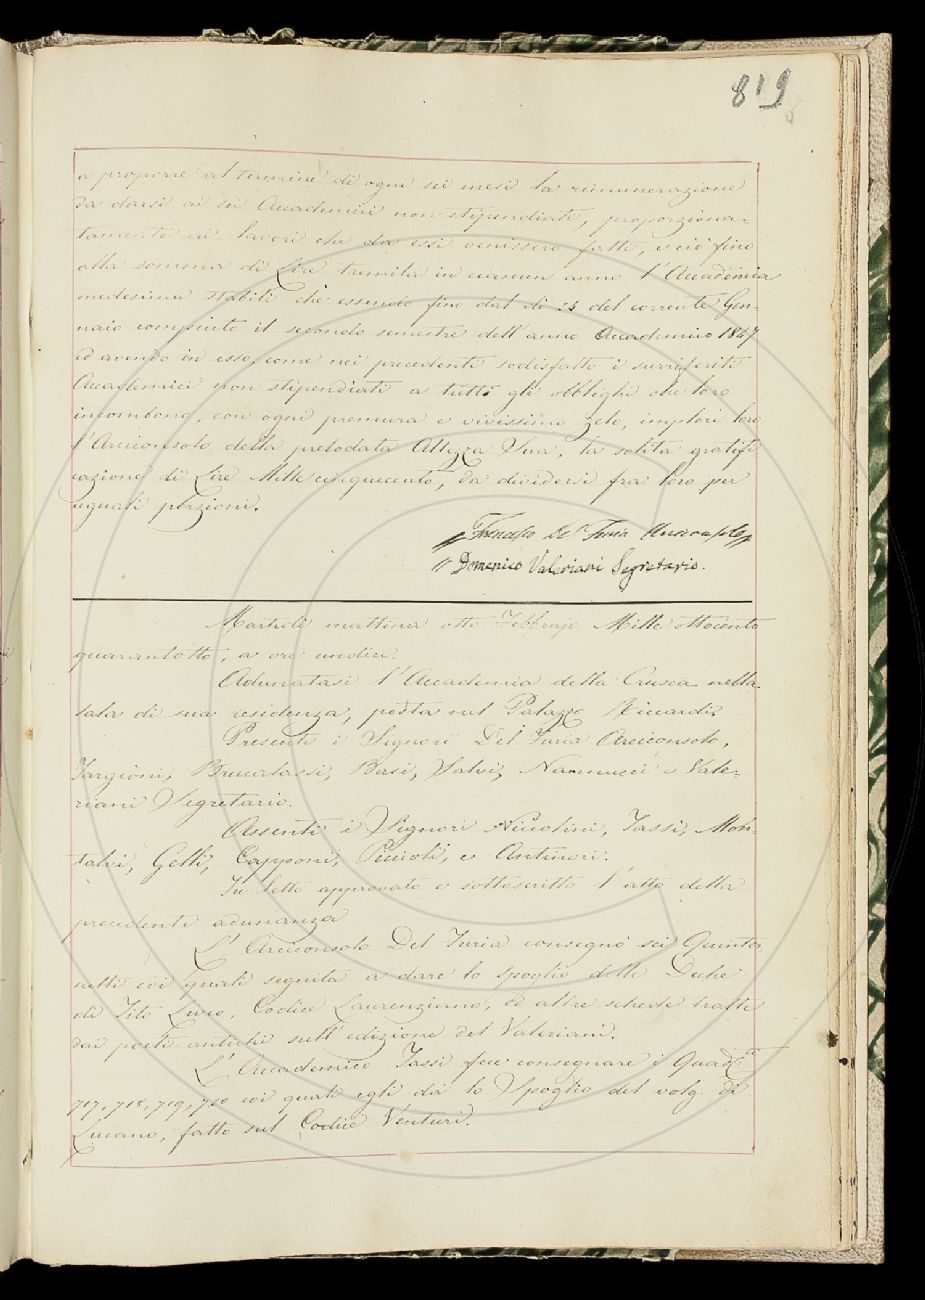 819
a proporre al termine di ogni sei mesi la rimunerazione
da darsi ai sei Accademici non stipendiati, proporziona-
tamente ai lavori che da essi venissero fatti, e ciò fino
alla somma di Lire tremila in ciascun anno l'Accademia
medesima stabilì che essendo fino dal dì del corrente Gen-
naio compiuto il secondo semestre dell'anno Accademico 1847
ed avendo in esso, come nei precedenti sodisfatto i surriferiti
Accademici non stipendiati a tutti gli obblighi che loro
incombono, con ogni premura e vivissimo zelo, implori loro
l'Arciconsolo della prelodata Altezza Sua, la solita gratifi
cazione di Lire Mille cinquecento, da dividersi fra loro per
uguali porzioni.
"Francesco Del Furia Arciconsolo"
"Domenico Valeriani Segretario.
Martedì mattina otto Febbrajo Mille ottocento
quarantotto, a ore undici.
Adunatasi l'Accademia della Crusca nella
sala di sua residenza, posta nel Palazzo Riccardi.
Presenti i Signori Del Furia Arciconsolo,
Targioni, Brucalassi, Basi, Salvi, Nannucci e Vale-
riani Segretario.
Assenti i Signori Niccolini, Tassi, Mon-
talvi, Gelli, Capponi, Piccioli, e Antinori.
Fu letto approvato e sottoscritto l'atto della
precedente adunanza
L'Arciconsolo Del Furia consegnò sei Quinter
netti coi quali seguita a dare lo spoglio delle Deche
di Tito Livio, Codice Laurenziano, ed altre schede tratte
dai poeti antichi sull'edizione del Valeriani.
L'Accademico Tassi fece consegnare i Quad.ti
717, 718, 719, 720 coi quali egli dà lo Spoglio del volg. di
Lucano, fatto sul Codice Venturi.